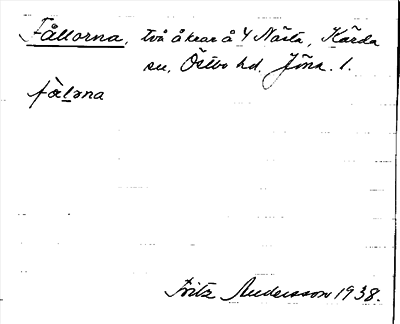 Fållorna, två åkrar å 4 Nästa, Kärda
sn, Östbo hd. Jöna. l.
fɑ̀lərna
Fritz Andersson 1938.